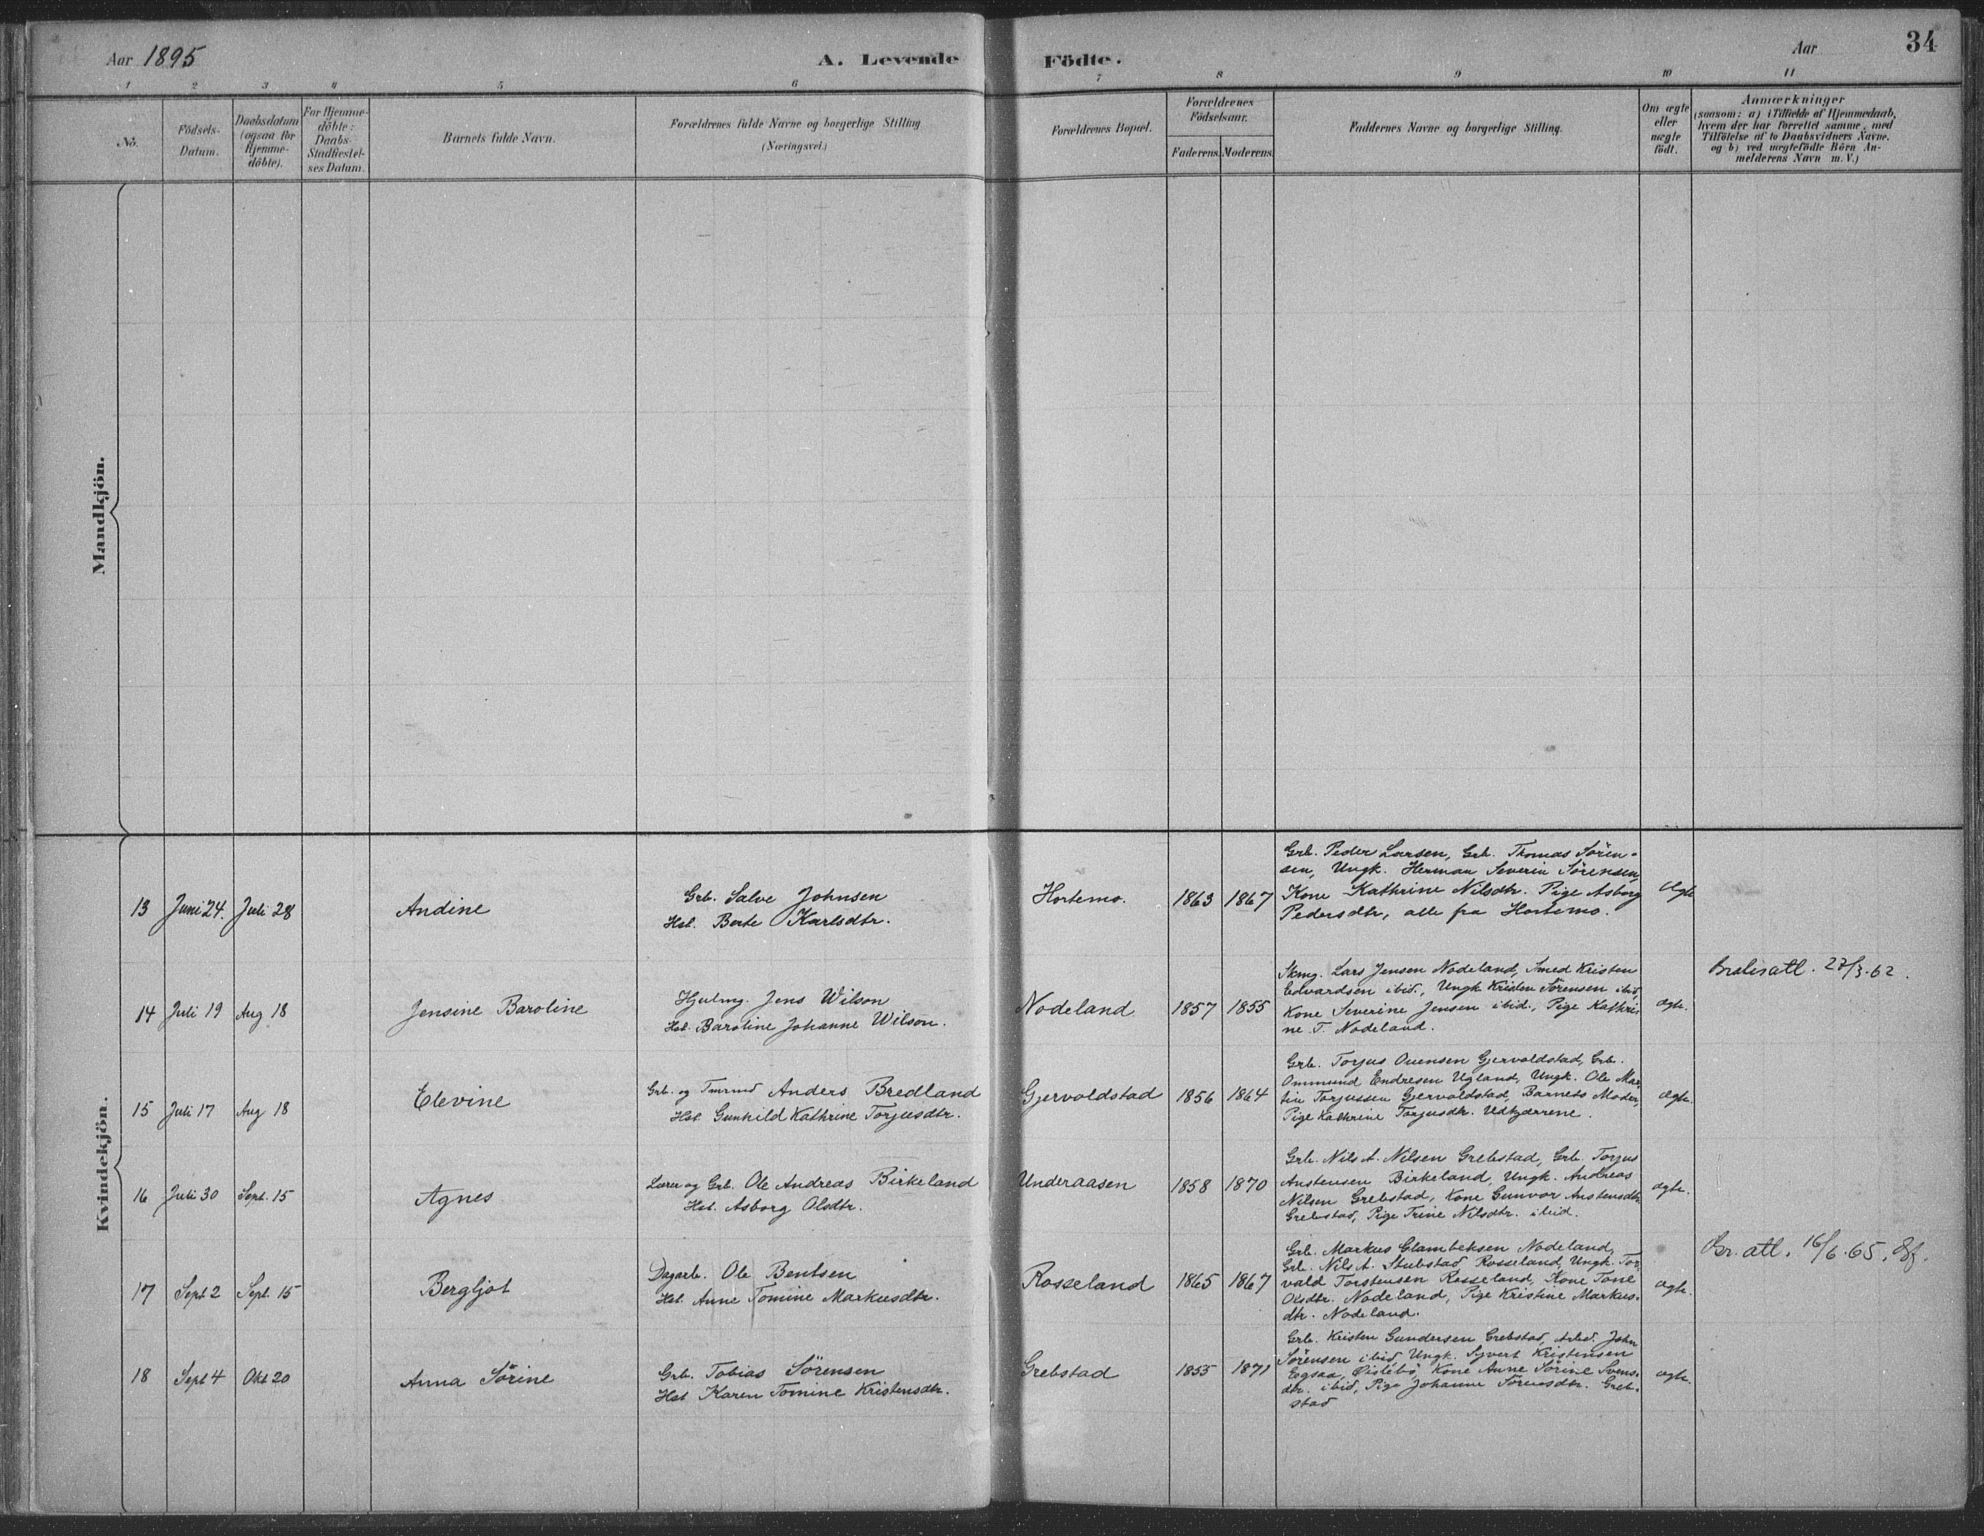 Aar 1895
A. Levende Födte.
Aar
34
1 2 3 4 5 6 7 8 9 10 11
No.
Födsels-
Datum.
Daabsdatum
(ogsaa for
Hjemme-
döbte).
For Hjemme-
döbte:
Daabs-
Stadfæstel-
ses Datum.
Barnets fulde Navn.
Forældrenes fulde Navne og borgerlige Stilling
(Næringsvei.)
Forældrenes Bopæl.
Forældrenes
Födselsaar.
Faderens. Moderens.
Faddernes Navne og borgerlige Stilling.
Om ægte
eller
uægte
født.
Anmærkninger
(saasom: a) i Tilfælde af Hjemmedaab,
hvem der har forrettet samme, med
Tilföielse af to Daabsvidners Navne.
og b) ved uægtefödte Börn An-
melderens Navn m. V.)
Mandkjön.
Kvindekjön.
13 Juni 24. Juli 28
Andine
Grb. Salve Johnsen
Hst. Berte Karlsdtr.
Hortemo.
1863 1867
Grb. Peder Larsen, Grb. Thomas Sören-
sen, Ungk. Herman Severin Sörensen,
Kone Kathrine Nilsdtr. Pige Asborg
Pedersdtr, alle fra Hortemo.
Ægte
14 Juli 19 Aug 18
Jensine Baroline
Hjulmg. Jens Wilson
Hst. Baroline Johanne Wilson.
Nodeland
1857 1855
Skmg. Lars Jensen Nodeland, Smed Kristen
Edvardsen ibid., Ungk Kristen Sörensen ibid,
Kone Severine Jensen ibid., Pige Kathri-
ne T. Nodeland.
ægte.
atl. 27/3.62.
15 Juli 17 Aug 18
Elevine
Grb. og Tmrmd Anders Bredland
Hst Gunhild Kathrine Torjusdtr.
Gjervoldstad
1856 1864
Grb. Torjus Ouensen Gjervoldstad, Grb.
Ommund Endresen Ugland, Ungk. Ole Mar-
tin Torjussen Gjervoldstad, Barnets Moder,
Pige Kathrine Torjusdtr. Udtjærene.
Ægte.
16 Juli 30 Sept. 15
Agnes
Lærer og Grb. Ole Andreas Birkeland
Hst. Asborg Olsdtr.
Underaasen
1858 1870
Grb. Nils A. Nilsen Grebstad, Grb. Torjus
Anstensen Birkeland, Ungk. Andreas
Nilsen Grebstad, Kone Gunvor Anstensdtr
Grebstad, Pige Trine Nilsdtr. ibid.
ægte.
17 Sept 2 Sept. 15
Bergljot
Dagarb. Ole Bentsen
Hst. Anne Tomine Markusdtr.
Rosseland
1865 1867
Grb. Markus Glambeksen Nodeland,
Grb. Nils A. Stubstad Rosseland, Ungk. Tor-
vald Torstensen Rosseland, Kone Tone
Olsdtr. Nodeland, Pige Kristine Markus-
dtr. Nodeland.
ægte.
Br. atl. 16/6.65.
18 Sept 4 Okt 20
Anna Sörine
Grb. Tobias Sörensen
Hst Karen Tomine Kristensdtr.
Grebstad
1855 1871
Grb. Kristen Gundersen Grebstad, Arbd. John
Sörensen ibid, Ungk. Syvert Kristensen
Eegsaa, Øislebö, Kone Anne Sörine Svens-
dtr. ibid, Pige Johanne Sörensdtr. Greb-
stad
ægte.